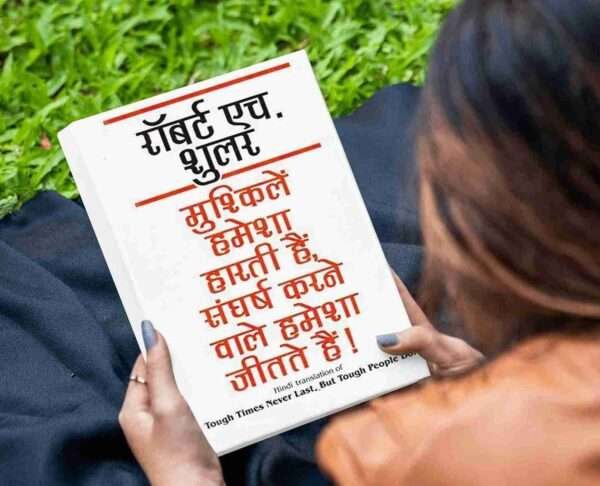 रॉबर्ट एच.
शुलर
मुश्किलें
हमेशा
हारती हैं,
संघर्ष करने
वाले हमेशा
जीतते हैं!
Hindi translation of
Tough Times Never Last, But Tough People